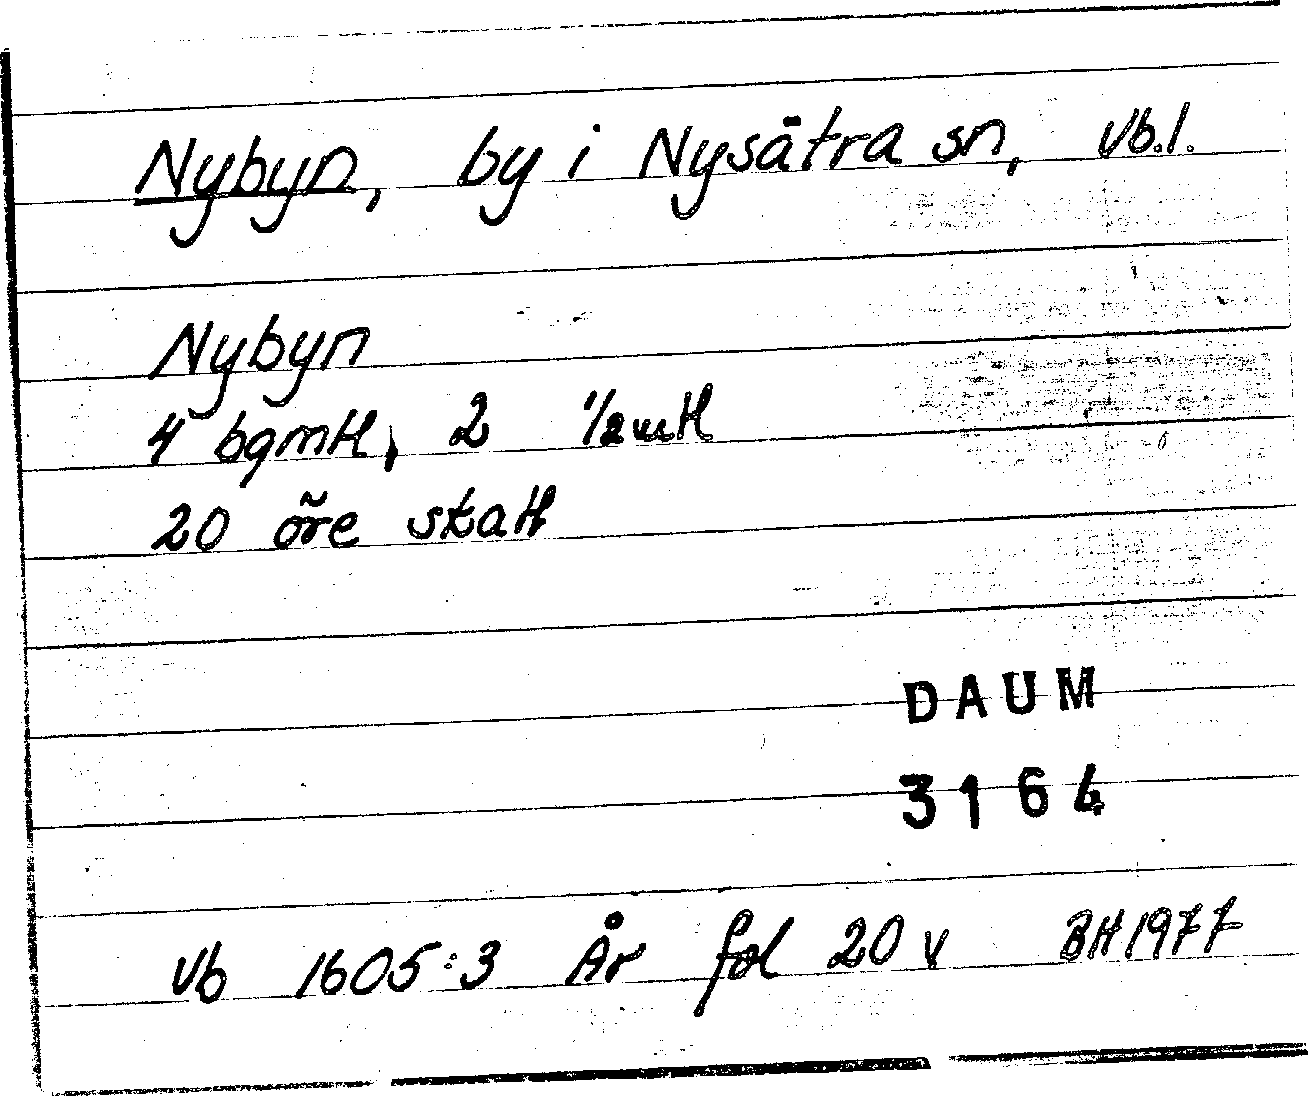 Nybyn, by i Nysätra sn, Vb.l.
Nybyn
4 bgmtl, 2 1/2 mtl
20 öre skatt
DAUM
3164
Vb 1605:3 År fol 20 v BH 1977